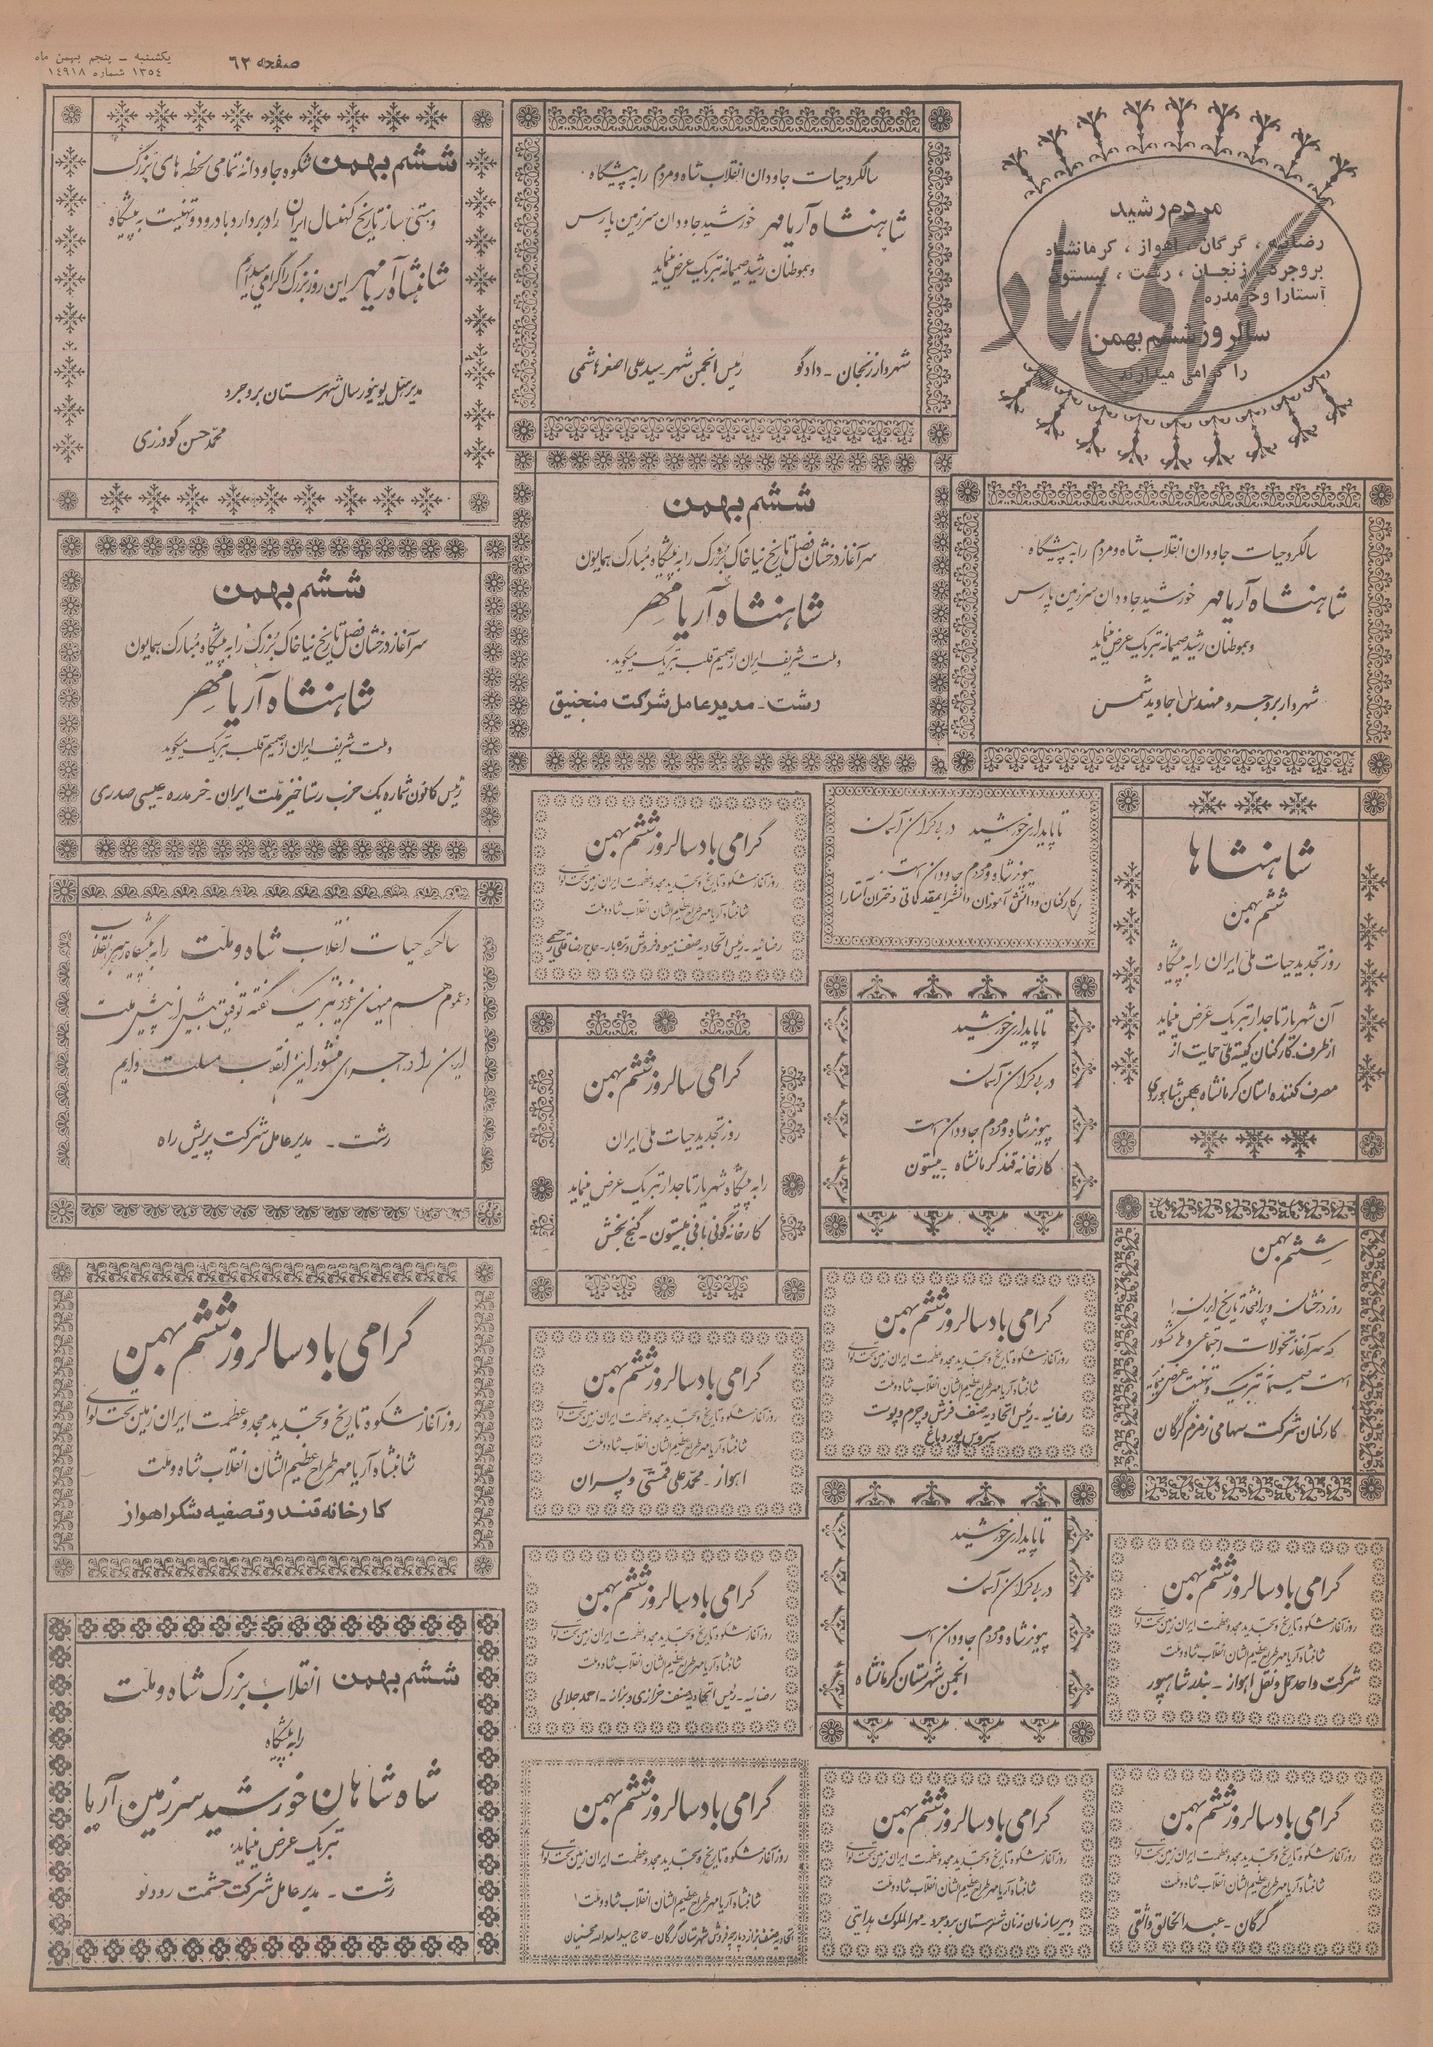 یکشنبه ـ پنجم بهمن ماه
۱۳۵۴ شماره ۱۴۹۱۸
صفحه ۶۲
مردم رشید
رضائیه ، گرگان ، اهواز ، کرمانشاه
بروجرد ، زنجان ، رشت ، بیستون
آستارا و خرمدره
سالروز ششم بهمن
را گرامی میدارند
گرامی باد
سالگرد حیات جاودان انقلاب شاه و مردم را به پیشگاه
شاهنشاه آریامهر خورشید جاودان سرزمین پارس
و هموطنان رشید صمیمانه تبریک عرض مینماید
شهردار زنجان - دادگو
رئیس انجمن شهر سید علی اصغر هاشمی
ششم بهمن شکوه جاودانه تمامی لحظه های بزرگ
و هستی ساز تاریخ کهنسال ایران را در بر دارد با درود و تهنیت به پیشگاه
شاهنشاه آریامهر این روز بزرگ را گرامی میداریم
مدیر هتل یونیورسال شهرستان بروجرد
محمد حسن گودرزی
سالگرد حیات جاودان انقلاب شاه و مردم را به پیشگاه
شاهنشاه آریامهر خورشید جاودان سرزمین پارس
و هموطنان رشید صمیمانه تبریک عرض مینماید
شهردار بروجرد مهندس جاوید شمس
ششم بهمن
سرآغاز درخشان فصل تاریخ نیاخاک بزرگ را به پیشگاه مبارک همایون
شاهنشاه آریامهر
و ملت شریف ایران از صمیم قلب تبریک میگوید.
رشت - مدیر عامل شرکت منجنیق
ششم بهمن
سرآغاز درخشان فصل تاریخ نیاخاک بزرگ را به پیشگاه مبارک همایون
شاهنشاه آریامهر
و ملت شریف ایران از صمیم قلب تبریک میگوید
رئیس کانون شماره یک حزب رستاخیز ملت ایران - خرمدره - عیسی صدری
شاهنشاها
ششم بهمن
روز تجدید حیات ملی ایران را به پیشگاه
آن شهریار تاجدار تبریک عرض مینماید
از طرف کارکنان کمیته ملی حمایت از
مصرف کننده استان کرمانشاه بهمن شاپوری
تا پایداری خورشید در بیکران آسمان
پیوند شاه و مردم جاودان است.
کارکنان و دانش آموزان دانشسرای مقدماتی دختران آستارا
گرامی باد سالروز ششم بهمن
روز آغاز شکوه تاریخ و تجدید مجد و عظمت ایران زمین تحت لوای
شاهنشاه آریامهر طراح عظیم الشان انقلاب شاه و ملت
رضائیه - رئیس اتحادیه صنف میوه فروش و تره بار - حاج رضاقلی رحیمی
سالگرد حیات انقلاب شاه و ملت را به پیشگاه رهبر انقلاب
و عموم هم میهنان عزیز تبریک گفته توفیق بیش از پیش ملت
ایران را در اجرای منشور این انقلاب مسئلت داریم
رشت - مدیر عامل شرکت پرش راه
تا پایداری خورشید
در بیکران آسمان
پیوند شاه و مردم جاودان است
کارخانه قند کرمانشاه - بیستون
گرامی سالروز ششم بهمن
روز تجدید حیات ملی ایران
را به پیشگاه شهریار تاجدار تبریک عرض مینماید
کارخانه گونی بافی بیستون - گنج بخش
ششم بهمن
روز درخشان و پر افتخار تاریخ ایران!
که سرآغاز تحولات اجتماعی و ملی کشور
است صمیمانه تبریک و تهنیت عرض مینماید
کارکنان شرکت سهامی زمزم گرگان
گرامی باد سالروز ششم بهمن
روز آغاز شکوه تاریخ و تجدید مجد و عظمت ایران زمین تحت لوای
شاهنشاه آریامهر طراح عظیم الشان انقلاب شاه و ملت
رضائیه - رئیس اتحادیه صنف فرش و چرم و پوست
سیروس پورد باغ
گرامی باد سالروز ششم بهمن
روز آغاز شکوه تاریخ و تجدید مجد و عظمت ایران زمین تحت لوای
شاهنشاه آریامهر طراح عظیم الشان انقلاب شاه و ملت
اهواز - محمد علی قمشی و پسران
گرامی باد سالروز ششم بهمن
روز آغاز شکوه تاریخ و تجدید مجد و عظمت ایران زمین تحت لوای
شاهنشاه آریامهر طراح عظیم الشان انقلاب شاه و ملت
کارخانه قند و تصفیه شکر اهواز
گرامی باد سالروز ششم بهمن
روز آغاز شکوه تاریخ و تجدید مجد و عظمت ایران زمین تحت لوای
شاهنشاه آریامهر طراح عظیم الشان انقلاب شاه و ملت
شرکت واحد حمل و نقل اهواز - بندر شاهپور
تا پایداری خورشید
در بیکران آسمان
پیوند شاه و مردم جاودان است
انجمن شهرستان کرمانشاه
گرامی باد سالروز ششم بهمن
روز آغاز شکوه تاریخ و تجدید مجد و عظمت ایران زمین تحت لوای
شاهنشاه آریامهر طراح عظیم الشان انقلاب شاه و ملت
رضائیه - رئیس اتحادیه صنف خرازی و بزازه - احمد جلالی
ششم بهمن انقلاب بزرگ شاه و ملت
را به پیشگاه
شاه شاهان خورشید سرزمین آریا
تبریک عرض مینماید:
رشت - مدیر عامل شرکت حشمت رود نو
گرامی باد سالروز ششم بهمن
روز آغاز شکوه تاریخ و تجدید مجد و عظمت ایران زمین تحت لوای
شاهنشاه آریامهر طراح عظیم الشان انقلاب شاه و ملت
گرگان - عبدالخالق واثقی
گرامی باد سالروز ششم بهمن
روز آغاز شکوه تاریخ و تجدید مجد و عظمت ایران زمین تحت لوای
شاهنشاه آریامهر طراح عظیم الشان انقلاب شاه و ملت
دبیر سازمان زنان شهرستان بروجرد - مهرالملوک هدایتی
گرامی باد سالروز ششم بهمن
روز آغاز شکوه تاریخ و تجدید مجد و عظمت ایران زمین تحت لوای
شاهنشاه آریامهر طراح عظیم الشان انقلاب شاه و ملت
اتحادیه صنف بزاز و پارچه فروش شهرستان گرگان - حاج سید اسدالله